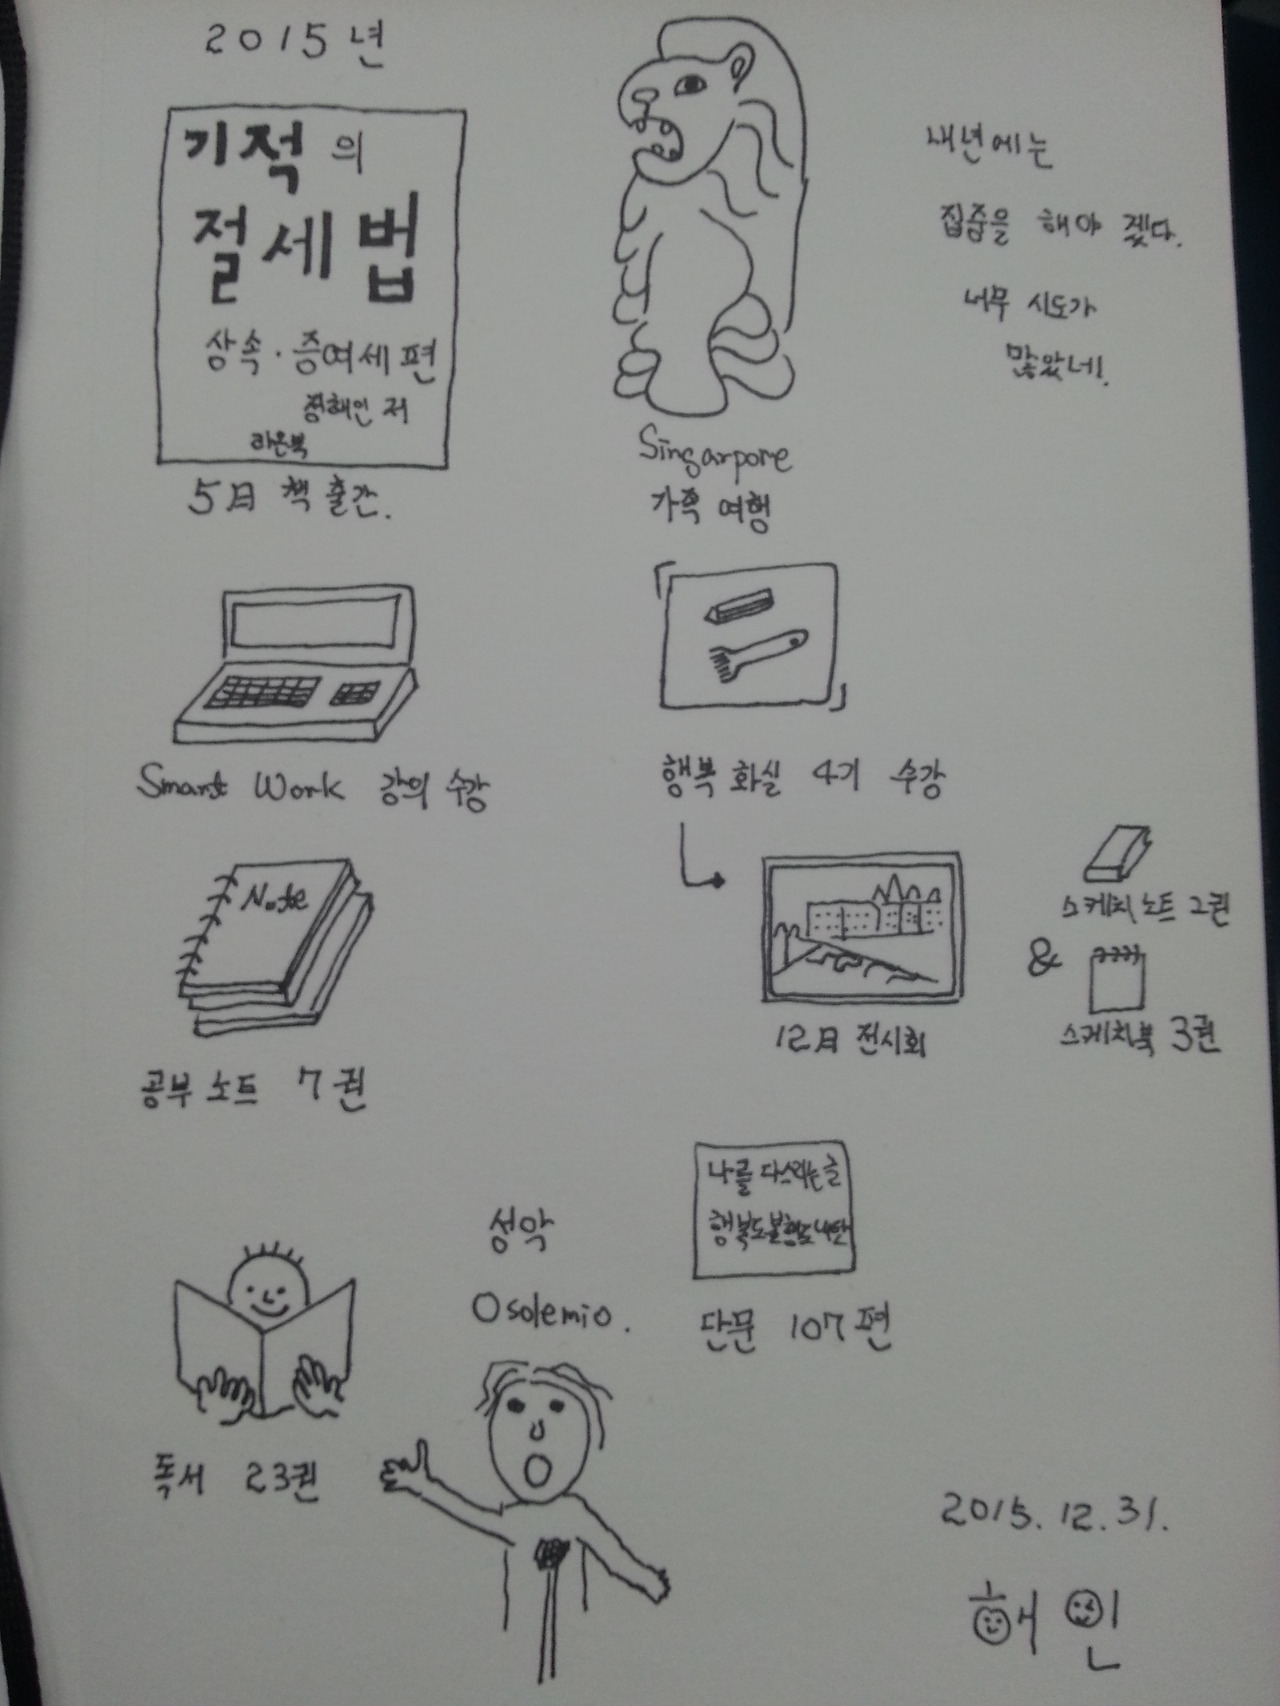 2015년
기적의
절세법
상속·증여세 편
정해인 저
라온북
5월 책 출간.
Singarpore
가족 여행
내년에는
집중을 해야 겠다.
너무 시도가
많았네!
Smart Work 강의 수강
행복 화실 4기 수강
Note
공부 노트 7권
12월 전시회
스케치 노트 2권
&
스케치북 3권
나를 다스리는 글
행복도 불행도
단문 107편
독서 23권
성악
Osolemio.
2015. 12. 31.
해인